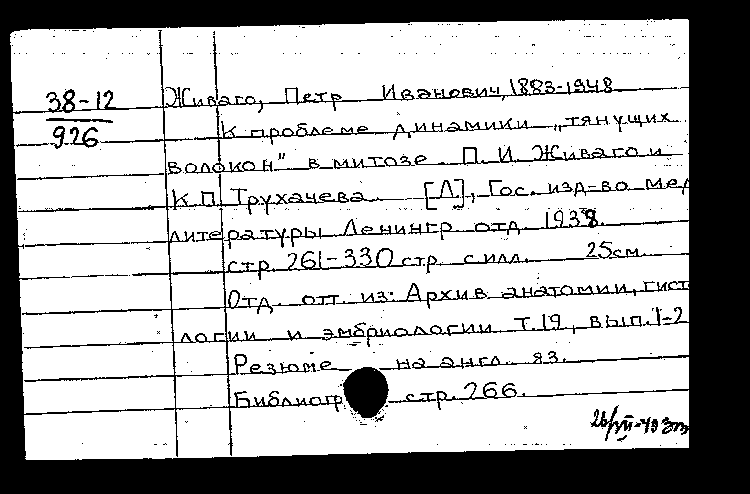 38-12
926
Живаго, Петр Иванович, 1883-1948
К проблеме динамики „тянущих
волокон" в митозе. П. И. Живаго и
К.П. Трухачева. [Л.], Гос. изд-во мед
литературы Ленингр отд. 1938.
стр. 261-330 стр. с илл. 25см.
Отд. отт. из: Архив анатомии, гист
логии и эмбриологии т.19, вып.1-2
Резюме на англ. яз.
Библиогр стр. 266.